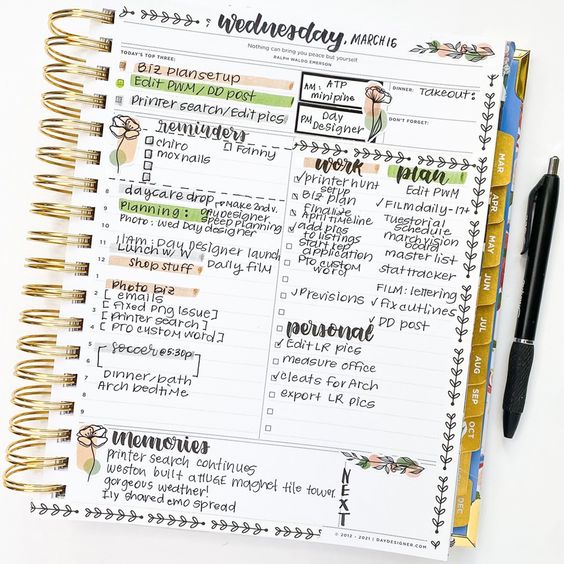 Wednesday, MARCH 16
Nothing can bring you peace but yourself.
RALPH WALDO EMERSON
TODAY'S TOP THREE:
Biz plan setup
Edit PWM / DD post
Printer search/Edit pics
AM: ATP
minipine
PM Day
Designer
DINNER:
Takeout:
DON'T FORGET:
reminders
chiro
Fanny
moxnails
8 daycare drop
9 Planning: anydesigner
→make 2nd v.
speed planning
Photo: Wed Day designer
11AM: Day Designer launch
Lunch w/ W
12 shop stuff Daily film
Photo biz
2 [ emails ]
[ Fixed png issue ]
3 [ printer search ]
4 [ PTO custom word ]
5 soccer @5:30p
6
7 Dinner/bath
Arch bedtime
8
9
work
✓ printer hunt
setup
Biz plan
Finalize
April Timeline
✓ add pics
to listings
Start rep
application
PTO custom
word
✓ Previsions
plan
Edit PWM
✓ FILM daily - 17+
Tuestorial
schedule
march vision
board
master list
stat tracker
FILM: lettering
✓ fix cutlines
✓ DD post
personal
✓ Edit LR pics
measure office
✓ cleats for Arch
export LR pics
memories
printer search continues
weston built a HUGE magnet tile tower
gorgeous weather!
Ily shared emo spread
NEXT
© 2012 - 2021 | DAYDESIGNER.COM
MAR
APR
MAY
JUN
JUL
AUG
SEP
OCT
DEC